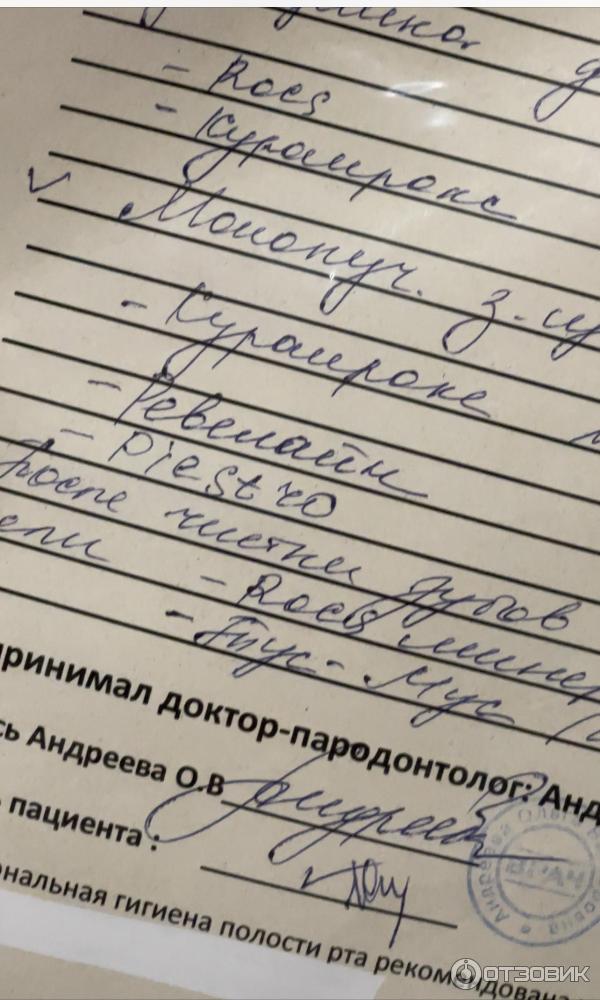 - Rocs
- Курапрокс
✓ Монопуч. з-щ
- Курапрокс
- Ревелайн
- Piestro
После чистки зубов
ели - Rocs минер
- Тус-Мус
принимал доктор-пародонтолог: Анд
сь Андреева О.В
пациента :
ональная гигиена полости рта рекомендована
ВРАЧ
ОТЗОВИК